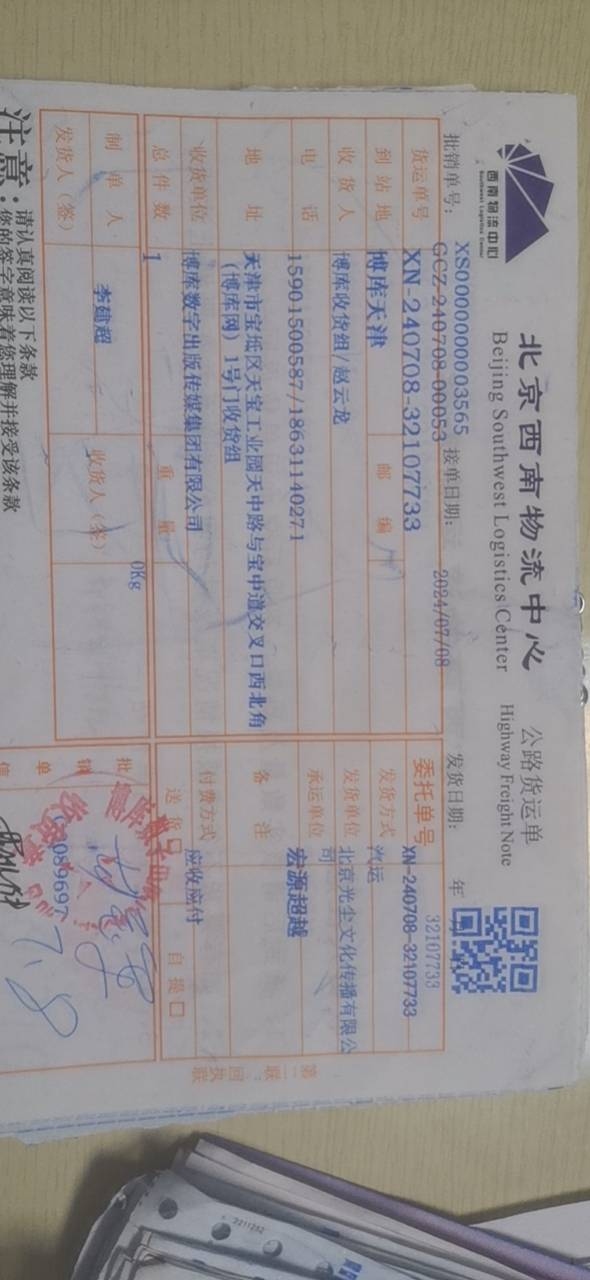 西南物流中心
Southwest Logistics Center
北京西南物流中心 公路货运单
Beijing Southwest Logistics Center Highway Freight Note
XS0000000003565
批销单号: GCZ-240708-00053 接单日期: 2024/07/08 发货日期: 年
32107733
货运单号 XN-240708-32107733 委托单号 XN-240708-32107733
到站地 博库天津 邮编 发货方式 汽运
收货人 博库收货组/赵云龙 发货单位 北京光尘文化传播有限公司
电话 15901500587/18631140271 承运单位 宏源超越
地址 天津市宝坻区天宝工业园天中路与宝中道交叉口西北角
(博库网) 1号门收货组 备注
收货单位 博库数字出版传媒集团有限公司 付费方式 应收应付
总件数 1 重量 0Kg 送货口 自提口
制单人 李建超 收货人(签)
发货人(签)
批销单
089697
7.8
第二联:回执联
注意:
请认真阅读以下条款
您的签字意味着您理解并接受该条款
2211282